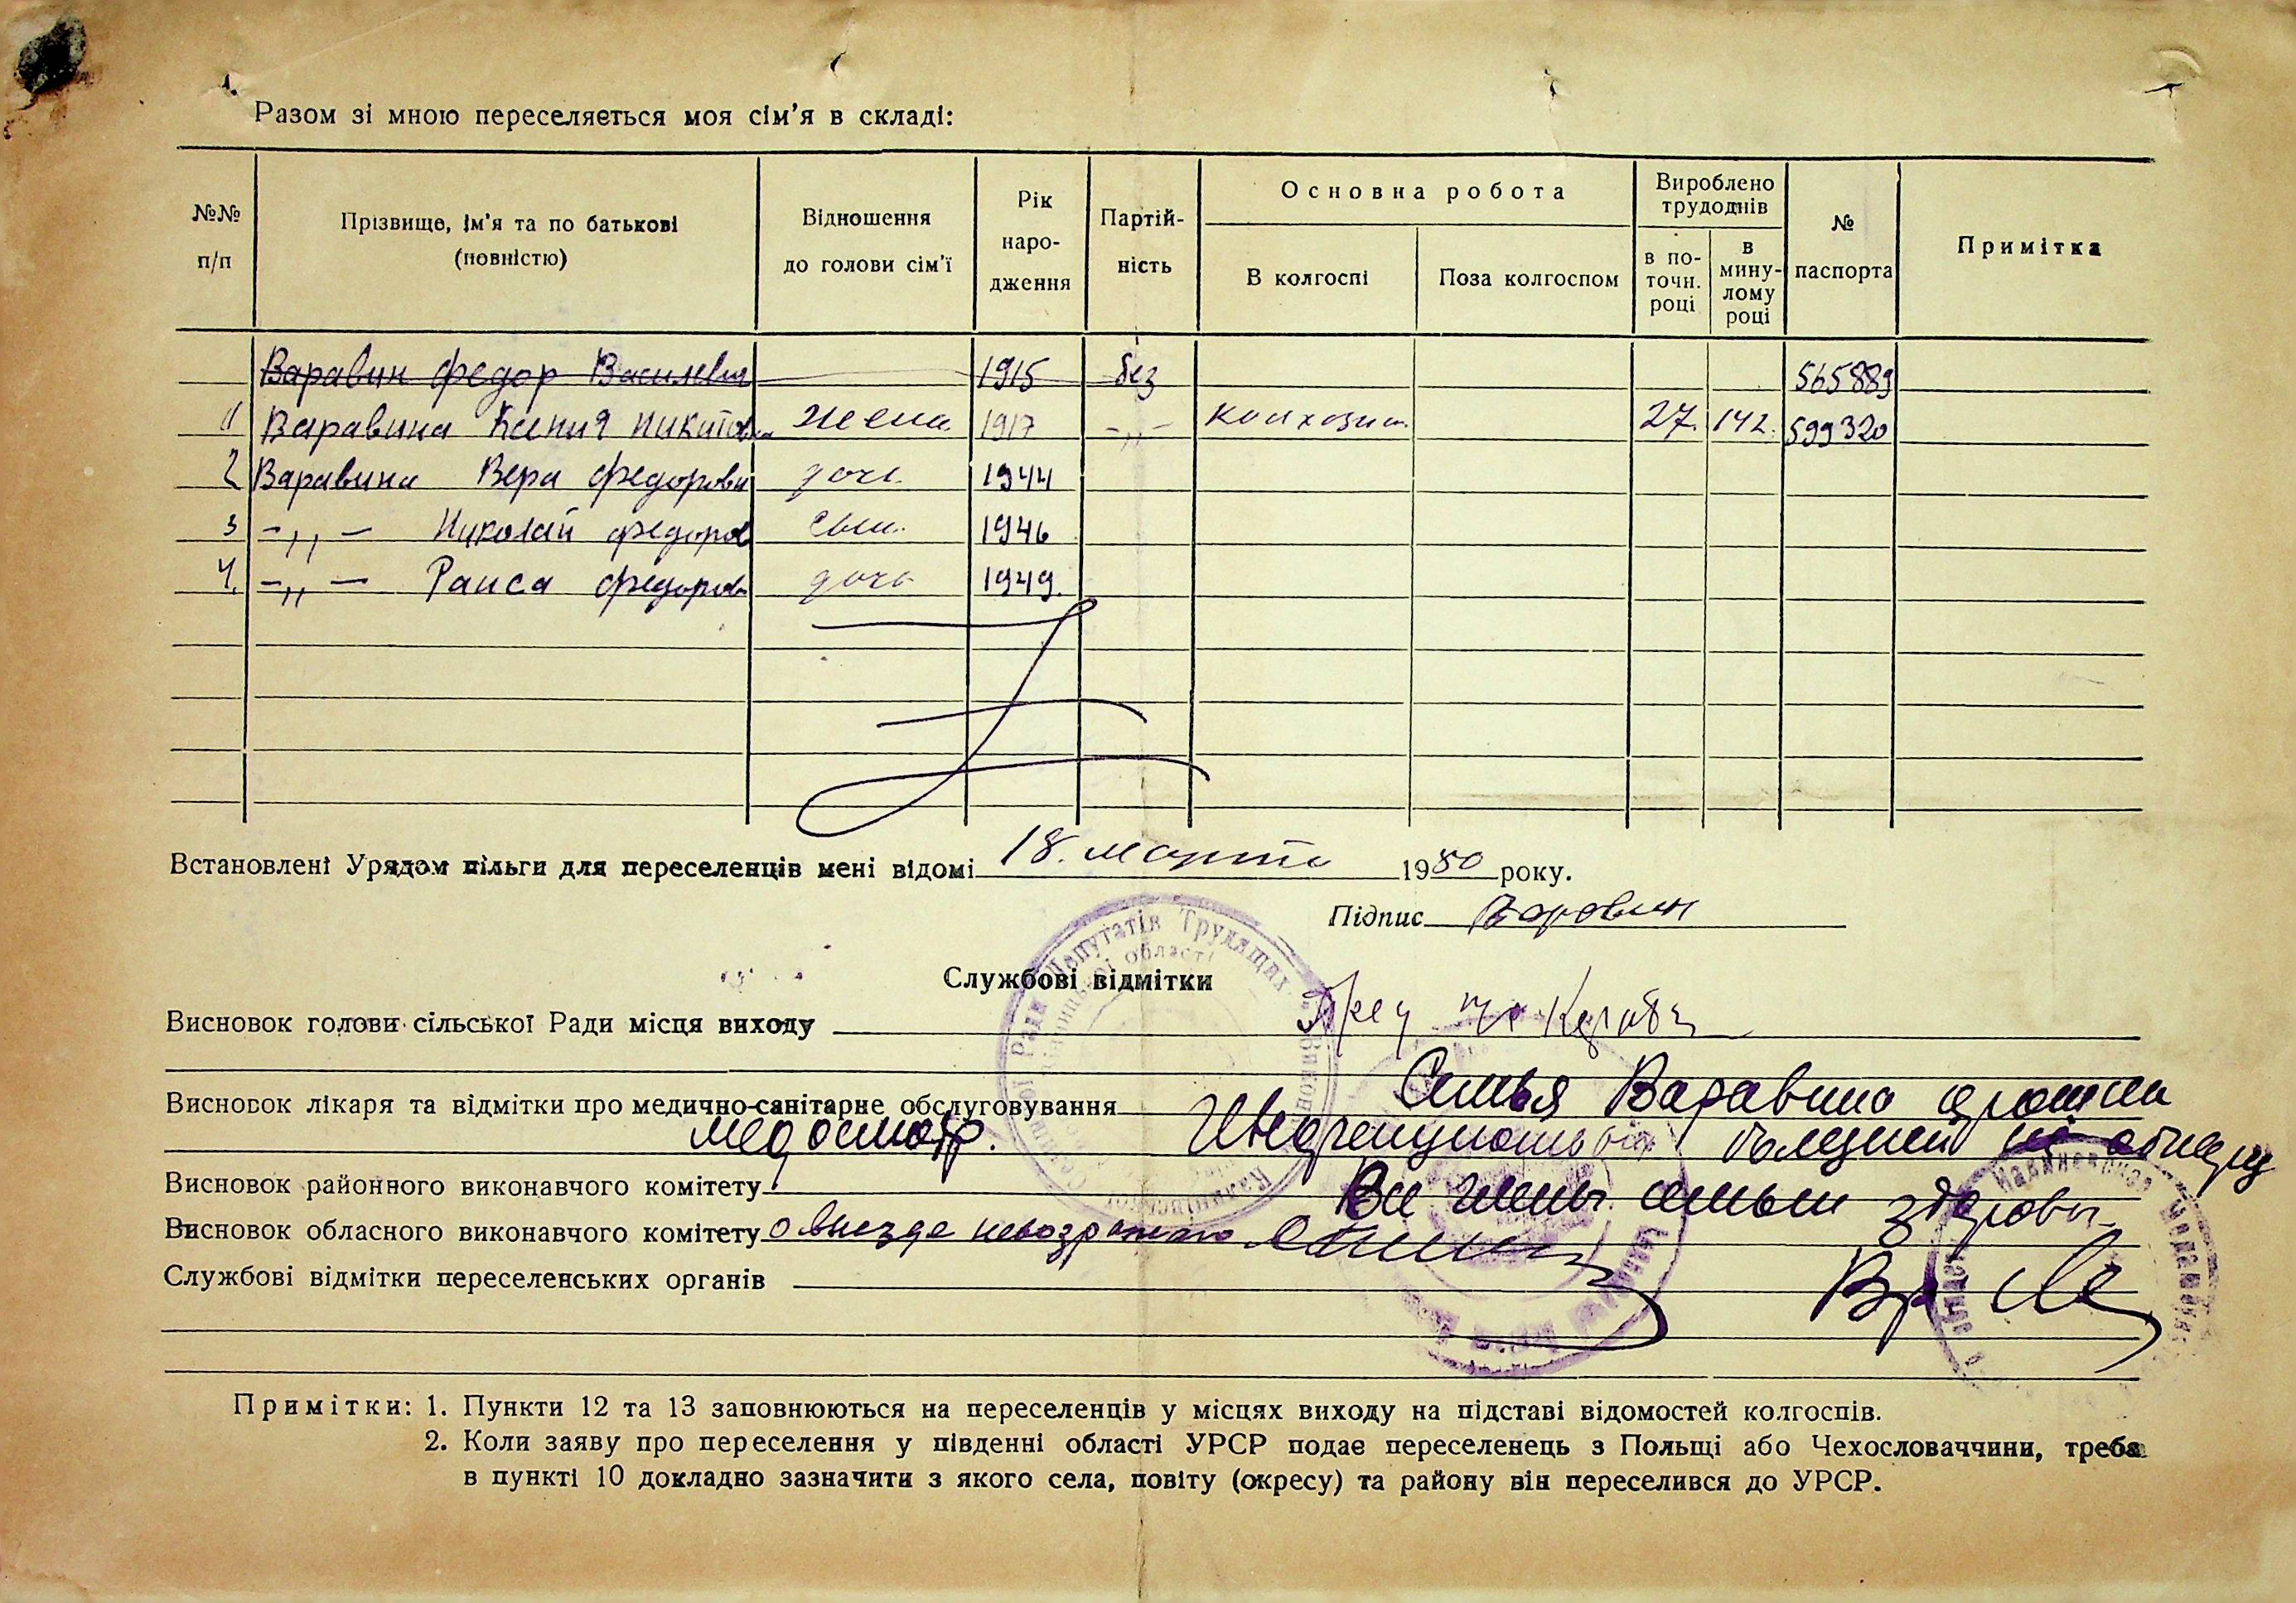 Разом зі мною переселяється моя сім'я в складі:
№№ п/п
Прізвище, ім'я та по батькові (повністю)
Відношення до голови сім'ї
Рік наро-дження
Партій-ність
Основна робота
В колгоспі
Поза колгоспом
Вироблено трудоднів
в по-точн. році
в мину-лому році
№ паспорта
Примітка
Варавин Федор Василевич 1915 без 565889
1 Варавина Ксения Никитов. жена 1917 -„- колхозн. 27. 142. 599320
2 Варавина Вера Федоровн дочь 1944
3 -„- Николай Федоров сын. 1946
4. -„- Раиса Федоров дочь 1949.
Встановлені Урядом пільги для переселенців мені відомі 18. марта 1950 року.
Підпис Варавин
Службові відмітки
Висновок голови сільської Ради місця виходу Пред
Висновок лікаря та відмітки про медично-санітарне обслуговування Семья Варавина прошла
медосмотр. Инфекционных болезней не обнару
Висновок районного виконавчого комітету Все члены семьи здоровы.
Висновок обласного виконавчого комітету о выезде невозражаю
Службові відмітки переселенських органів
Примітки: 1. Пункти 12 та 13 заповнюються на переселенців у місцях виходу на підставі відомостей колгоспів.
2. Коли заяву про переселення у південні області УРСР подає переселенець з Польщі або Чехословаччини, треба
в пункті 10 докладно зазначити з якого села, повіту (окресу) та району він переселився до УРСР.